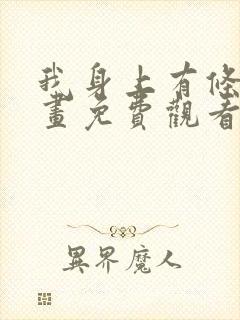 我身上有條
畫免費觀看
異界魔人